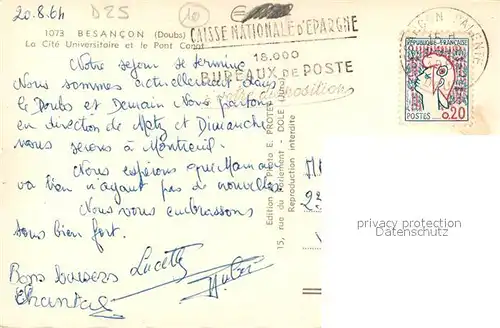 20.8.64 D25 10
CAISSE NATIONALE D'EPARGNE
18.000
BUREAUX DE POSTE
à votre disposition
1073 BESANÇON (Doubs)
La Cité Universitaire et le Pont Canot
REPUBLIQUE FRANÇAISE
POSTES 0,20
Notre séjour se termine
Nous sommes actuellement dans
le Doubs et Demain Nous partons
en direction de Metz et Dimanche
nous serons à Montreuil.
Nous espérons que Maman
va bien n'ayant pas de nouvelles
Nous vous embrassons
tous bien fort.
Bons baisers Lucette
Chantal
Edition Photo E. PROTET
15, rue du Parlement - DOLE (Jura)
Reproduction interdite
privacy protection
Datenschutz